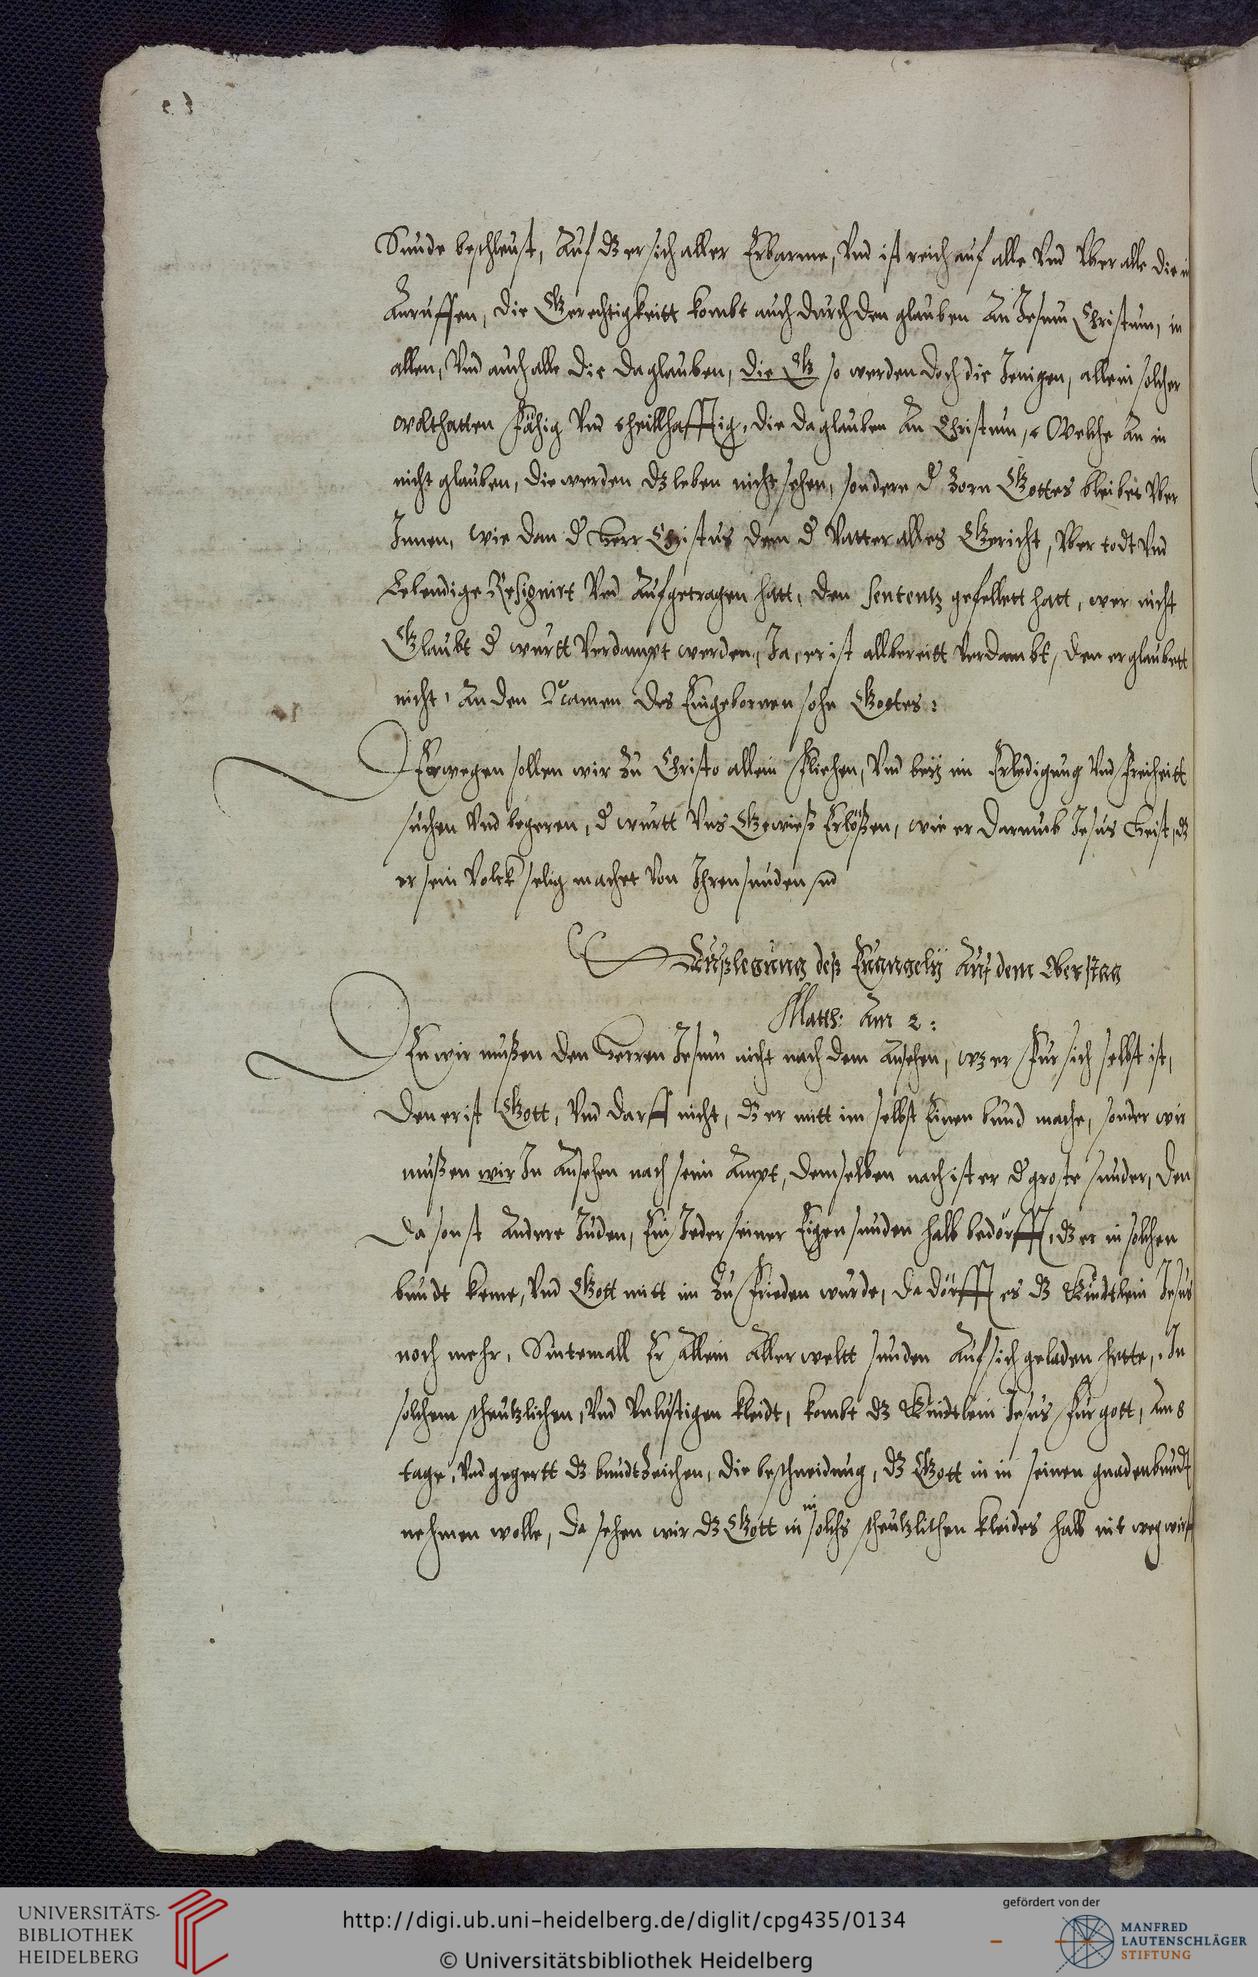 Sunde beschleust, Auf dz er sich aller Erbarme, Vnd ist reich auf alle Vnd Vber alle die in
Anruffen, die Gerechtigkeitt kombt auch durch den glauben An Jesum Christum, in
allen, Vnd auch alle die da glauben, die so werden doch die Jenigen, allein solcher
wolthatten fähig Vnd theillhafftig, die da glauben An Christum, Welche An in
nicht glauben, die werden dz leben nicht sehen, sondern d Zorn Gottes bleibet Vber
Innen, wie dan d Herr Christus dem d Vatter alles Gericht, Vber todt Vnd
Lebendige Resignirt Vnd Aufgetragen hatt, den sententz gefellett hatt, wer nicht
Glaubt d wurtt Verdampt werden, Ja, er ist allbereitt Verdambt, den er glaubett
nicht, An den Namen des Eingebornen sohn Gottes:
Derwegen sollen wir Zu Christo allein fliehen, Vnd beÿ im Erledigung Vnd freiheitt
suchen Vnd begeren, d wurtt Vns Gewieß Erlößen, wie er darumb Jesus Heist, dz
er sein Volck selig machet Von Ihren sunden
Außlegung deß Euangelij Auf dem Oberstag
Matth: Am 2:
Den wir mußen den Herren Jesum nicht nach dem Ansehen, wz er fur sich selbst ist,
den er ist Gott, Vnd darff nicht, dz er mitt im selbst Einen bund mache, sonder wir
mußen wir In Ansehen nach sein Ampt, demselben nach ist er d groste sunder, den
da sonst Andere Juden, Ein Jeder seiner Eigen sunden halb bedörfft, dz er in solchen
bundt keme, Vnd Gott mitt im Zu frieden wurde, da dörfft es dz Kindtlein Jesus
noch mehr, Sintemall Er Allein Aller weltt sunden Auf sich geladen hette, In
solchem scheutzlichen, Vnd Vnlustigen kleidt, kombt dz Kindtlein Jesus fur gott, Am 8
tage, Vnd gegertt dz bundtzeichen, die beschneidung, dz Gott in in seinen gnadenbundt
nehmen wolle, da sehen wir dz Gott in solchs scheutzlichen kleides halb nit weg wirfft
UNIVERSITÄTS-
BIBLIOTHEK
HEIDELBERG
http://digi.ub.uni-heidelberg.de/diglit/cpg435/0134
© Universitätsbibliothek Heidelberg
gefördert von der
MANFRED
LAUTENSCHLÄGER
STIFTUNG